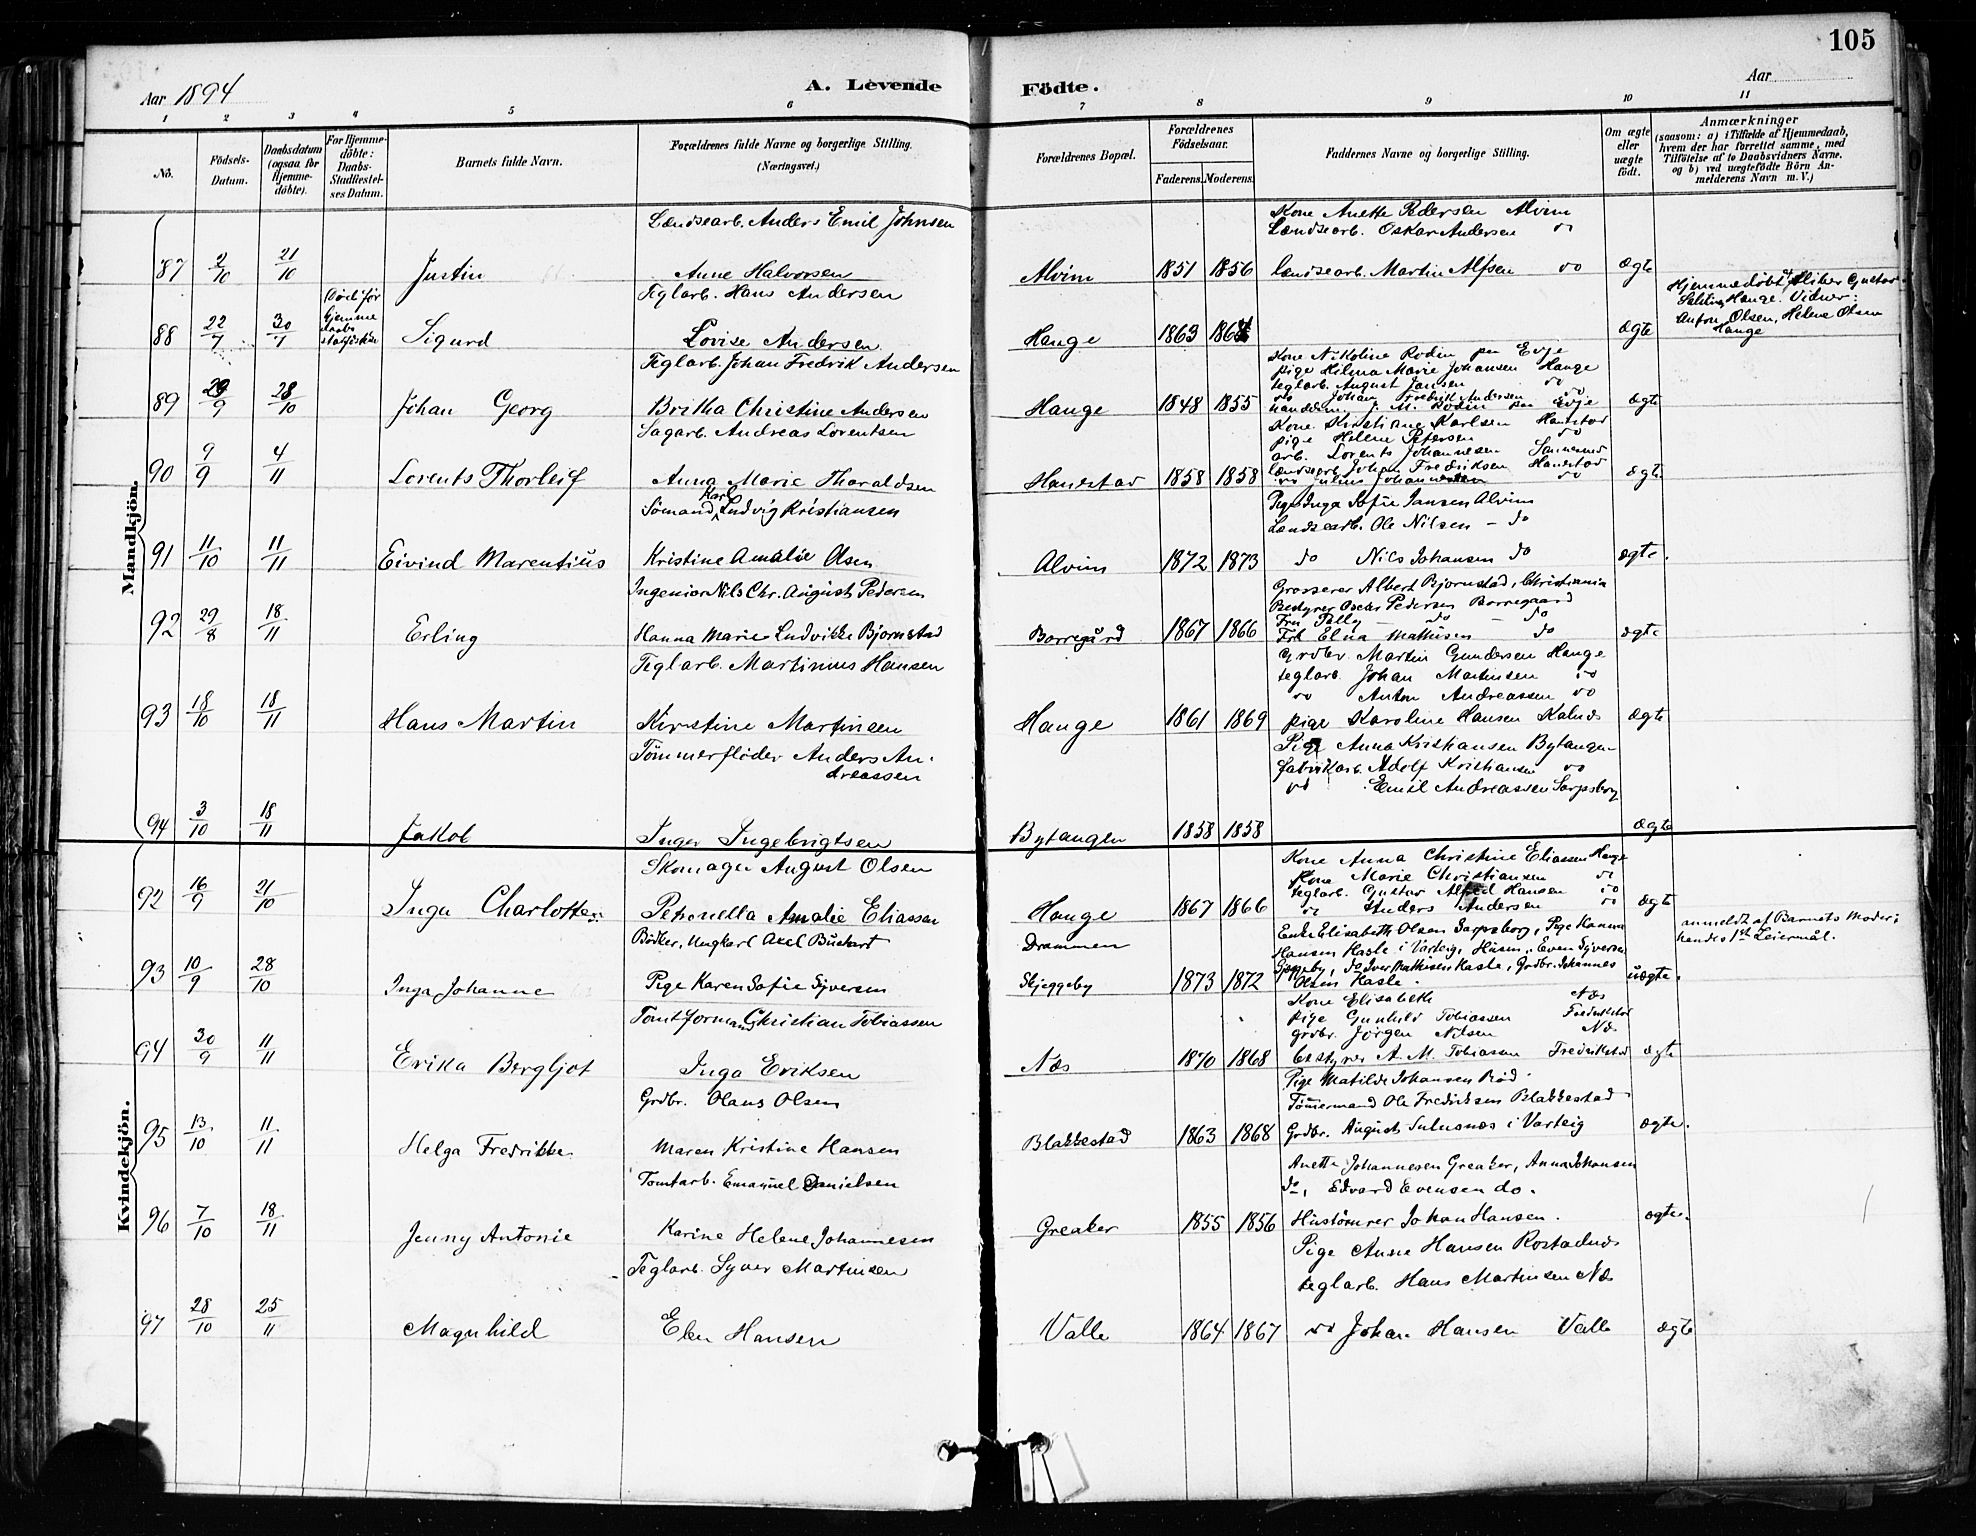 105
Aar 1894
A. Levende
Födte.
Aar
1 2 3 4 5 6 7 8 9 10 11
No.
Födsels-Datum.
Daabsdatum (ogsaa for Hjemme-döbte).
For Hjemme-döbte: Daabs-Stadfæstel-ses Datum.
Barnets fulde Navn.
Forældrenes fulde Navne og borgerlige Stilling. (Næringsvei.)
Forældrenes Bopæl.
Forældrenes Födselsaar.
Faderens. Moderens.
Faddernes Navne og borgerlige Stilling.
Om ægte eller uægte födt.
Anmærkninger
(saasom: a) i Tilfælde af Hjemmedaab, hvem der har forrettet samme, med Tilföielse af to Daabsvidners Navne. og b) ved uægtefödte Börn An-melderens Navn m. V.)
Mandkjön.
Lændsearb. Anders Emil Johnsen
Kone Anette Pedersen Alvim
Lændsearb. Oskar Andersen do
87 2/10 21/10 Justin Anne Halvorsen Alvim 1851 1856 lændsearb. Martin Alfsen do ægte
Teglarb. Hans Andersen
Død før Hjemme daabs
88 22/7 30/7 Sigurd Lovise Andersen Hauge 1863 1864 ægte
Hjemmedøbt af
Hauge. Vidner:
Anton Olsen, Helene Olsen
Hauge
Teglarb. Johan Fredrik Andersen
Kone Nikoline Rodin pr Evje
pige Hilma Marie Johansen Hauge
teglarb. August Jansen do
do Johan Fredrik Andersen do
89 29/9 28/10 Johan Georg Britha Christine Andersen Hauge 1848 1855 J. M. Rodin pr Evje ægte
Sagarb. Andreas Lorentsen
Kone Kristiane Karlsen Hanestad
pige Helene Petersen do
arb. Lorents Johannesen
lændsearb. Johan Fredriksen Hanestad
90 9/9 4/11 Lorents Thorleif Anna Marie Tharaldsen Hanestad 1858 1858 do Julius Johannesen do ægte
Sömand Karl Ludvig Kristiansen
Pige Inga Sofie Jansen Alvim
Lændsearb. Ole Nilsen - do
91 11/10 11/11 Eivind Marentius Kristine Amalie Olsen Alvim 1872 1873 do Nils Johansen do ægte.
Ingeniør Nils Chr. August Pedersen
Grosserer Albert Bjørnstad, Christiania
Bestyrer Oscar Pedersen Borregaard
Fru Polly - do - do
92 29/8 18/11 Erling Hanna Marie Ludvikke Bjørnstad Borregård 1867 1866 Frk Elna Mathisen do ægte
Teglarb. Martinius Hansen
Grdbr. Martin Gundersen Hauge
teglarb. Johan Martinsen do
do Anton Andreassen do
93 18/10 18/11 Hans Martin Kirstine Martinsen Hauge 1861 1869 pige Karoline Hansen Kalnæs ægte
Tömmerflöder Anders An-
dreassen
Pige Anna Kristiansen Bytangen
fabrikarb. Adolf Kristiansen do
do Emil Andreassen Sarpsborg
94 3/10 18/11 Jakob Inger Ingebrigtsen Bytangen 1858 1858 ægte
Kvindekjön.
Skomager August Olsen
Kone Anna Christine Eliassen Hauge
Kone Marie Christiansen do
teglarb. Gustav Alfred Hansen do
92 16/9 21/10 Inga Charlotte Petronella Amalie Eliassen Hauge 1867 1866 do Anders Andersen do ægte
Bödker, Ungkarl Axel Buchart Drammen
Enke Elisabeth Olsen Sarpsborg, Pige Hanna
Hansen Hasle i Varteig, Husm. Even Syversen
Skjeggeby, do Iver Mathisen Hasle, Grdbr. Johannes
93 10/9 28/10 Inga Johanne Pige Karen Sofie Syversen Skjeggeby 1873 1872 Olsen Hasle. uægte.
anmeldt af Barnets Moder;
hendes 1ste Leiermål.
Tomtformand Christian Tobiassen
Kone Elisabeth Næs
pige Gunhild Tobiassen Fredrikstad
grdbr. Jörgen Nilsen Næs
94 30/9 11/11 Erika Bergljot Inga Eriksen Næs 1870 1868 bestyrer A. M. Tobiassen Fredrikstad ægte
Grdbr. Olaus Olsen
Pige Matilde Johansen Röd.
Tömmermand Ole Fredriksen Blakkestad
95 13/10 11/11 Helga Fredrikke Maren Kristine Hansen Blakkestad 1863 1868 Grdbr. August Sulusnæs i Varteig ægte.
Tomtarb. Emanuel Danielsen
Anette Johannesen Greaker, Anna Johansen
do, Edvard Evensen do.
96 7/10 18/11 Jenny Antonie Karine Helene Johannesen Greaker 1855 1856 Hustömrer Johan Hansen. ægte.
Teglarb. Syver Martinsen
Pige Anne Hansen Rostadnæs
teglarb. Hans Martinsen Næs
97 28/10 25/11 Magnhild Elen Hansen Valle 1864 1867 do Johan Hansen Valle ægte